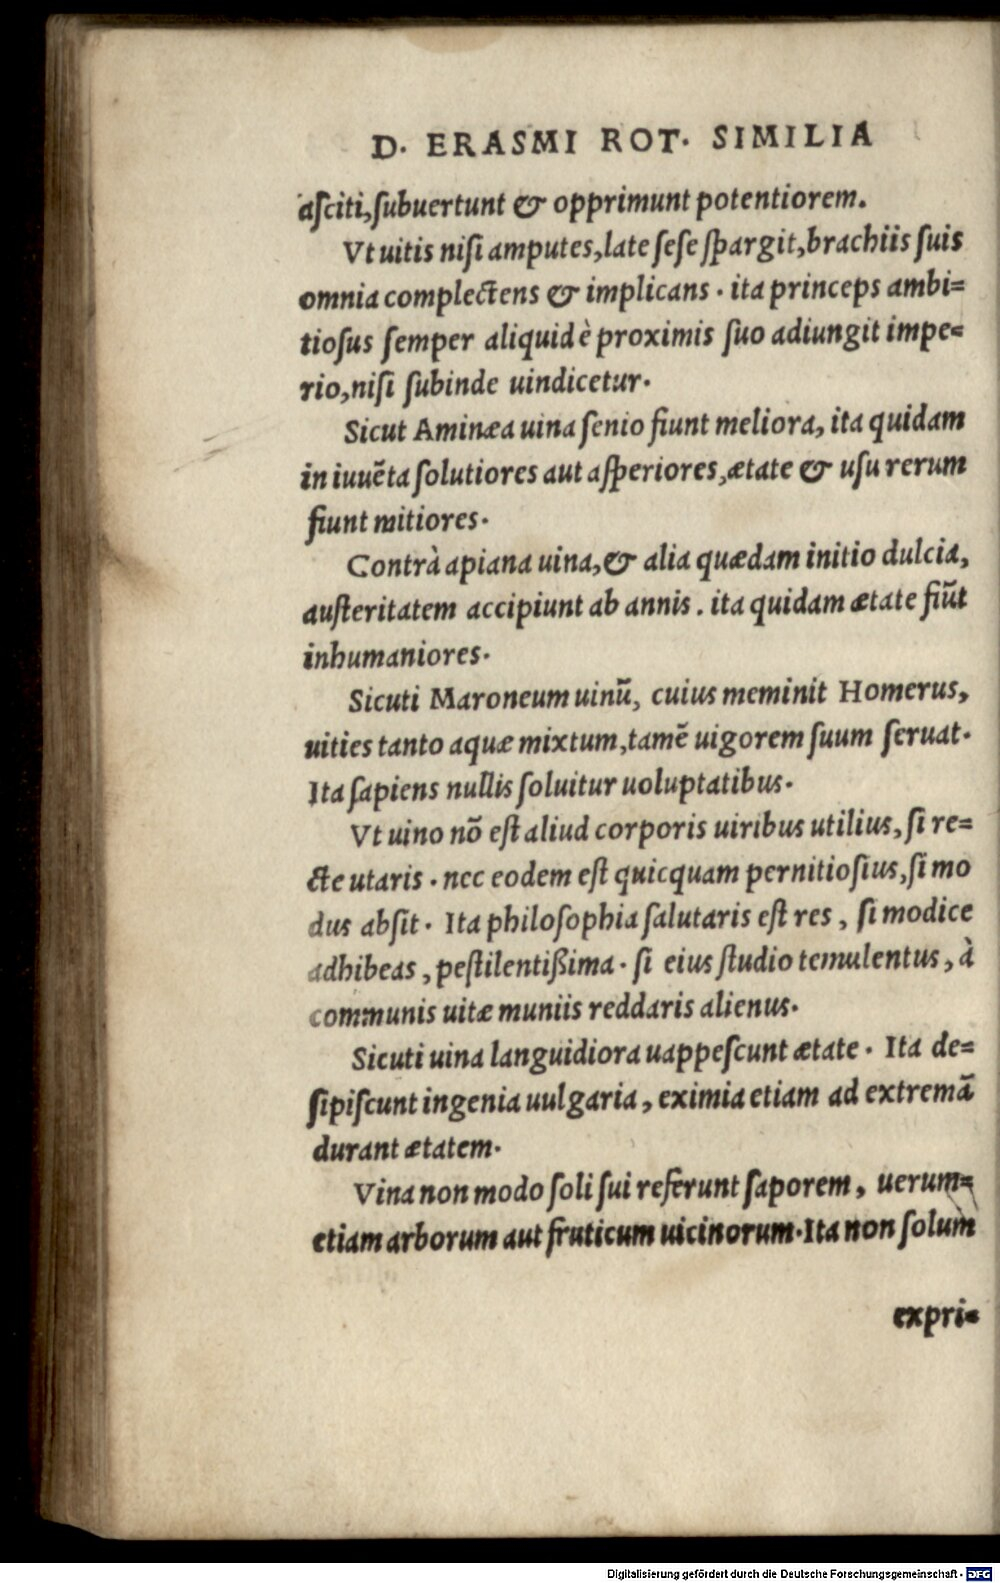 D. ERASMI ROT. SIMILIA
aſciti,ſubuertunt & opprimunt potentiorem.
Vt uitis niſi amputes,late ſeſe ſpargit,brachiis ſuis
omnia complectens & implicans. ita princeps ambi=
tioſus ſemper aliquid è proximis ſuo adiungit impe=
rio,niſi ſubinde uindicetur.
Sicut Aminæa uina ſenio fiunt meliora, ita quidam
in iuuẽta ſolutiores aut aſperiores,ætate & uſu rerum
fiunt mitiores.
Contrà apiana uina,& alia quædam initio dulcia,
auſteritatem accipiunt ab annis. ita quidam ætate fiũt
inhumaniores.
Sicuti Maroneum uinũ, cuius meminit Homerus,
uities tanto aquæ mixtum,tamẽ uigorem ſuum ſeruat.
Ita ſapiens nullis ſoluitur uoluptatibus.
Vt uino nõ eſt aliud corporis uiribus utilius, ſi re=
cte utaris. nec eodem eſt quicquam pernitioſius,ſi mo
dus abſit. Ita philoſophia ſalutaris eſt res, ſi modice
adhibeas, peſtilentißima. ſi eius ſtudio temulentus, à
communis uitæ muniis reddaris alienus.
Sicuti uina languidiora uappeſcunt ætate. Ita de=
ſipiſcunt ingenia uulgaria, eximia etiam ad extremã
durant ætatem.
Vina non modo ſoli ſui referunt ſaporem, uerum=
etiam arborum aut fruticum uicinorum. Ita non ſolum
expri=
Digitalisierung gefördert durch die Deutsche Forschungsgemeinschaft - DFG